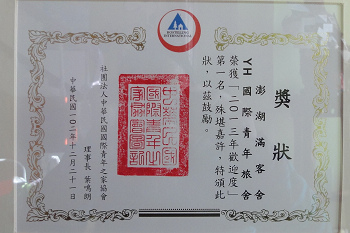 HOSTELLING
INTERNATIONAL
獎狀
澎湖滿客舍
YH國際青年旅舍
榮獲「二0一三年歡迎度」
第一名，殊堪嘉許，特頒此
狀，以茲鼓勵。
社團法人中華民國國際青年之家協會
理事長 葉鳴朗
中華民國一0二年十二月二十一日